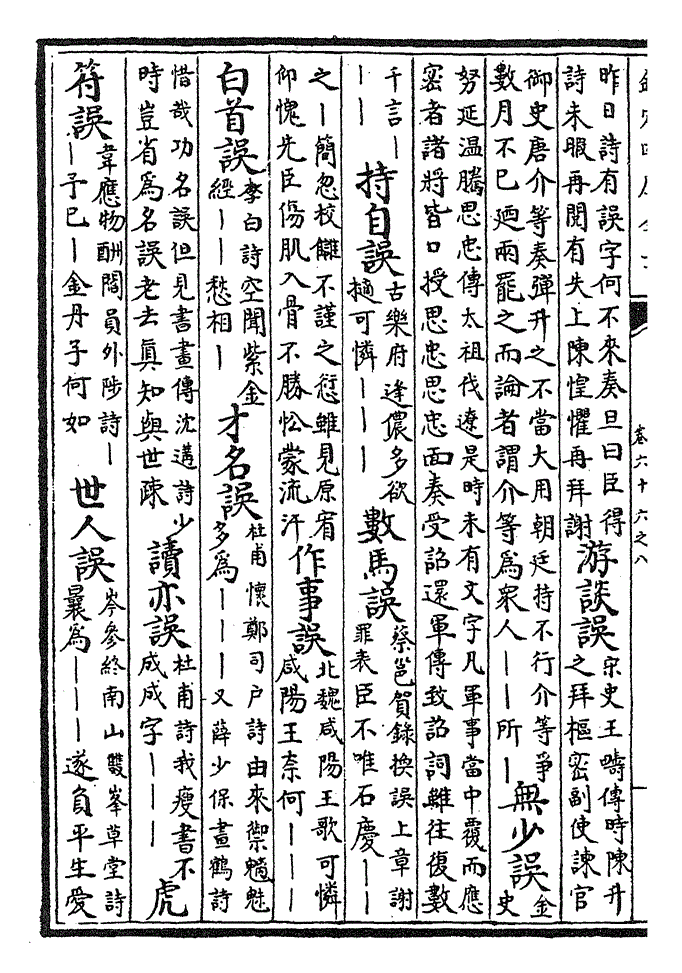 卷六十六之八
昨日詩有誤字何不來奏旦曰臣得
詩未暇再閱有失上陳惶懼再拜謝
游談誤
宋史王疇傳時陳升
之拜樞密副使諫官
御史唐介等奏彈升之不當大用朝廷持不行介等爭
數月不已迺兩罷之而論者謂介等為衆人｜｜所｜
無少誤
金
史
努延温騰思忠傳太祖伐遼是時未有文字凡軍事當中覆而應
密者諸將皆口授思忠思忠面奏受詔還軍傳致詔詞雖往復數
千言｜
｜｜
持自誤
古樂府逢儂多欲
擿可憐｜｜｜
數馬誤
蔡邕賀錄換誤上章謝
罪表臣不唯石慶｜｜
之｜簡忽校讎不謹之愆雖見原宥
仰愧先臣傷肌入骨不勝忪蒙流汗
作事誤
北魏咸陽王歌可憐
咸陽王奈何｜｜｜
白首誤
李白詩空聞紫金
經｜｜愁相｜
才名誤
杜甫懷鄭司户詩由來禦魑魅
多為｜｜｜又薛少保畫鶴詩
惜哉功名誤但見書畫傳沈遘詩少
時豈省為名誤老去真知與世疎
讀亦誤
杜甫詩我瘦書不
成成字｜｜｜
虎
符誤
韋應物酬閻員外陟詩｜
｜予已｜金丹子何如
世人誤
岑參終南山雙峯草堂詩
曩為｜｜｜遂負平生愛